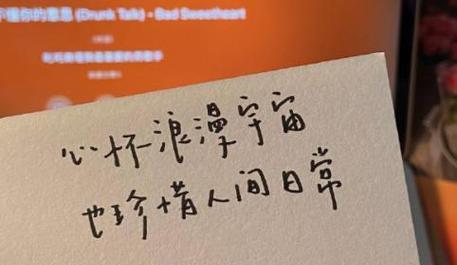 懂你的意思 (Drunk Talk) - Bad Sweetheart
心怀浪漫宇宙
也珍惜人间日常